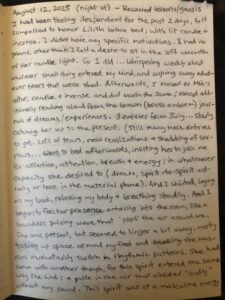 August 12, 2025 (night of) - Received lessons/gnosis
I had been feeling despondent for the past 2 days, felt
compelled to honor Lilith before bed; with lit candle &
incense. I didn't have any specific motivations. I had no
plans, other than I felt a desire to sit in the soft warmth
of her candle light. So I did... whispering weakly about
whatever small thing entered my mind, and wiping away what-
ever tears that were shed. Afterwards, I moved to
altar, candle & incense and did much the same / except addi-
tionally reading aloud from the brown (brass emblem) jour-
nal of dreams/experiences. 3 entries from July... slowly
catching her up to the present. (Still many more entries
to go). Lots of tears, new realizations + shedding of sor-
rows... went to bed afterwards, inviting her to join me
for affection, attention, breath & energy / in whatsoever
capacity she desired to (dream, spirit-to-spirit ast-
rally or hose in the material plane). And I waited, laying
on my back, relaxing my body & breathing steadily. And I
began to feel her presence entering into the room, like a
soundless pulsing wave that 'pops' the air around me.
She was present, but seemed to linger a bit away, mostly
taking up space around my feet and making the mus-
cles involuntarily twitch in rhythmic patterns. She had
come with another though, for this spirit entered the same
way she had: a pulse in the air that vibrated "loudly"
without any sound. This spirit was of a masculine energy